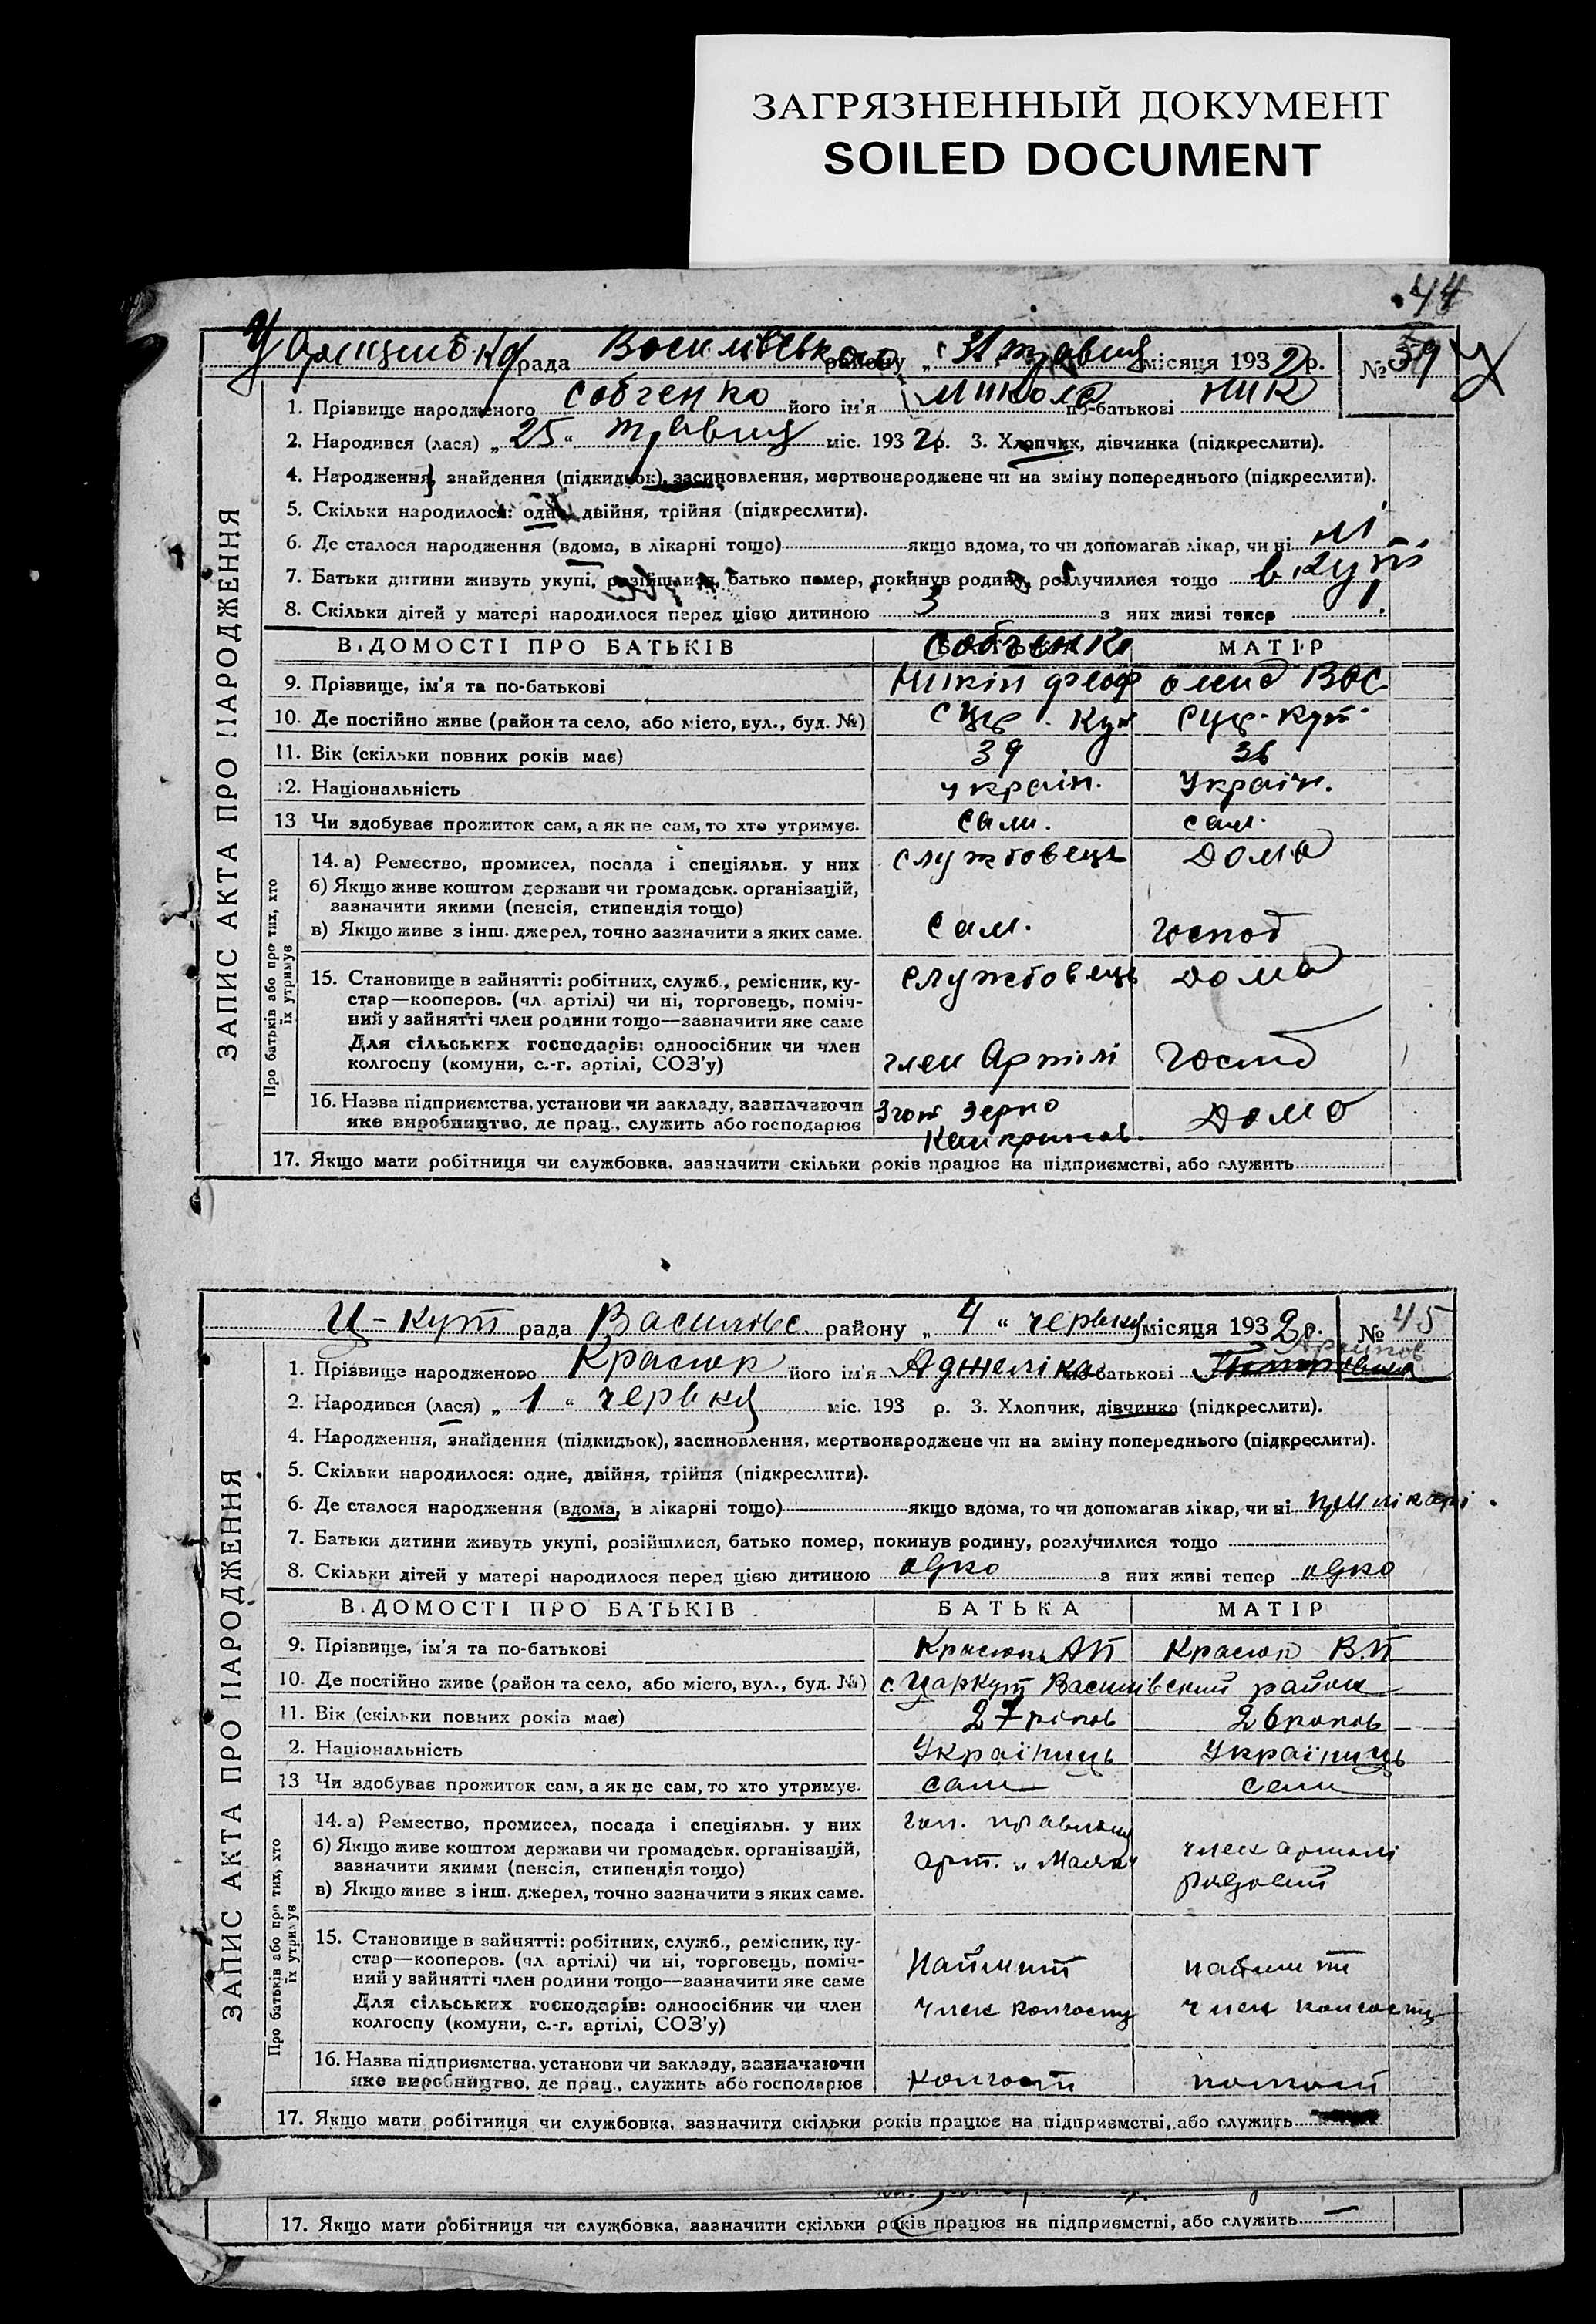 ЗАГРЯЗНЕННЫЙ ДОКУМЕНТ
SOILED DOCUMENT
44
рада Василівського району „31 травня місяця 1932 р. № 39
ЗАПИС АКТА ПРО НАРОДЖЕННЯ
1. Прізвище народженого Собченко його ім'я Микола по-батькові Ник
2. Народився (лася) „ 25 “ травня міс. 1932 р. 3. Хлопчик, дівчинка (підкреслити).
4. Народження, знайдення (підкидьок), засиновлення, мертвонароджене чи на зміну попереднього (підкреслити).
5. Скільки народилося: одне, двійня, трійня (підкреслити).
6. Де сталося народження (вдома, в лікарні тощо) якщо вдома, то чи допомагав лікар, чи ні ні
7. Батьки дитини живуть укупі, розійшлися, батько помер, покинув родину, розлучилися тощо вкупі
8. Скільки дітей у матері народилося перед цією дитиною 3 з них живі тепер 1.
ВІДОМОСТІ ПРО БАТЬКІВ Собченко МАТІР
9. Прізвище, ім'я та по-батькові Никін Феоф Вас
10. Де постійно живе (район та село, або місто, вул., буд. №) с Цар. Кут с Цар. Кут
11. Вік (скільки повних років має) 39 36
12. Національність україн. Україн.
13 Чи здобуває прожиток сам, а як не сам, то хто утримує. сам. сам.
Про батьків або про тих, хто їх утримує
14. а) Ремество, промисел, посада і спеціяльн. у них службовець Дома
б) Якщо живе коштом держави чи громадськ. організацій,
зазначити якими (пенсія, стипендія тощо)
в) Якщо живе з інш. джерел, точно зазначити з яких саме. сам. господ
15. Становище в зайнятті: робітник, служб., ремісник, ку- службовець дома
стар—кооперов. (чл. артілі) чи ні, торговець, поміч-
ний у зайнятті член родини тощо—зазначити яке саме
Для сільських господарів: одноосібник чи член член Артілі
колгоспу (комуни, с.-г. артілі, СОЗ'у)
16. Назва підприємства, установи чи закладу, зазначаючи зерно Дома
яке виробництво, де прац., служить або господарює
17. Якщо мати робітниця чи службовка, зазначити скільки років працює на підприємстві, або служить
Ц-Кут рада Василівс. району „ 4 “ червня місяця 1932 р. № 45
ЗАПИС АКТА ПРО НАРОДЖЕННЯ
1. Прізвище народженого Красюк його ім'я Аджеліка по-батькові
2. Народився (лася) „ 1 “ червня міс. 193 р. 3. Хлопчик, дівчинка (підкреслити).
4. Народження, знайдення (підкидьок), засиновлення, мертвонароджене чи на зміну попереднього (підкреслити).
5. Скільки народилося: одне, двійня, трійня (підкреслити).
6. Де сталося народження (вдома, в лікарні тощо) якщо вдома, то чи допомагав лікар, чи ні при лікарі
7. Батьки дитини живуть укупі, розійшлися, батько помер, покинув родину, розлучилися тощо
8. Скільки дітей у матері народилося перед цією дитиною одно з них живі тепер одно
ВІДОМОСТІ ПРО БАТЬКІВ БАТЬКА МАТІР
9. Прізвище, ім'я та по-батькові Красюк АП Красюк В.П
10. Де постійно живе (район та село, або місто, вул., буд. №) с. Царкут Василівский район
11. Вік (скільки повних років має) 27 років 26 років
2. Національність Українець Українець
13 Чи здобуває прожиток сам, а як не сам, то хто утримує. сам сам
Про батьків або про тих, хто їх утримує
14. а) Ремество, промисел, посада і спеціяльн. у них гол. правління
б) Якщо живе коштом держави чи громадськ. організацій, арт. „Маяк“ член артілі
зазначити якими (пенсія, стипендія тощо) рядовий
в) Якщо живе з інш. джерел, точно зазначити з яких саме.
15. Становище в зайнятті: робітник, служб., ремісник, ку-
стар—кооперов. (чл артілі) чи ні, торговець, поміч- наймит наймит
ний у зайнятті член родини тощо—зазначити яке саме
Для сільських господарів: одноосібник чи член член колгоспу член колгоспу
колгоспу (комуни, с.-г. артілі, СОЗ'у)
16. Назва підприємства, установи чи закладу, зазначаючи
яке виробництво, де прац., служить або господарює колгосп колгосп
17. Якщо мати робітниця чи службовка, зазначити скільки років працює на підприємстві, або служить
17. Якщо мати робітниця чи службовка, зазначити скільки років працює на підприємстві, або служить —